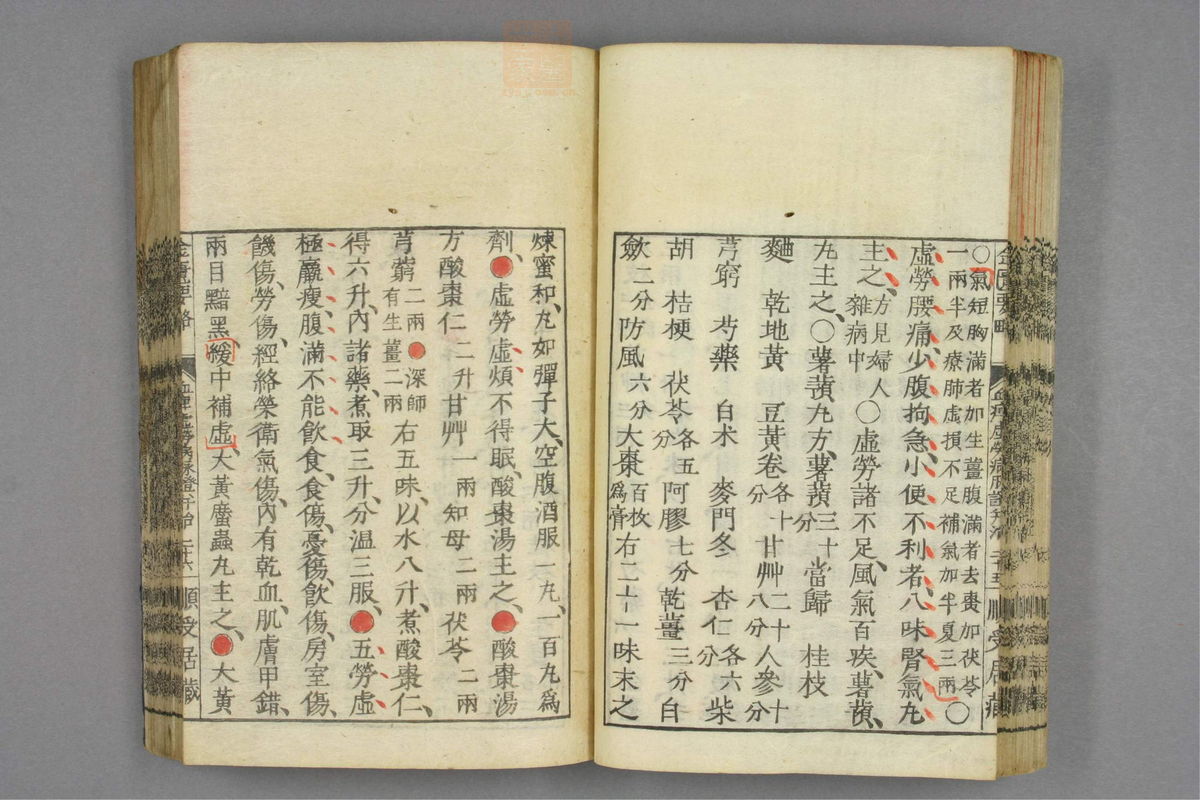 ○氣短胸滿者加生薑腹滿者去棗加茯苓
一兩半及療肺虛損不足補氣加半夏三兩○
虛勞腰痛少腹拘急小便不利者八味腎氣丸
主之方見婦人雜病中○虛勞諸不足風氣百疾薯蕷
丸主之○薯蕷丸方薯蕷三十分當歸 桂枝
麯 乾地黃 豆黃卷各十分甘艸二十八分人參十分
芎窮 芍藥 白术 麥門冬 杏仁各六分柴
胡 桔梗 茯苓各五分阿膠七分乾薑三分白
斂二分防風六分大棗百枚爲膏右二十一味末之
金匱要略
順受居藏
煉蜜和丸如彈子大空腹酒服一丸一百丸爲
劑●虛勞虛煩不得眠酸棗湯主之●酸棗湯
方酸棗仁二升甘艸一兩知母二兩茯苓二兩
芎藭二兩●深師有生薑二兩右五味以水八升煮酸棗仁
得六升內諸藥煮取三升分溫三服●五勞虛
極羸瘦腹滿不能飲食食傷憂傷飲傷房室傷
饑傷勞傷經絡榮衛氣傷內有乾血肌膚甲錯
兩目黯黑緩中補虛大黃䗪蟲丸主之●大黃
金匱要略
順受居藏